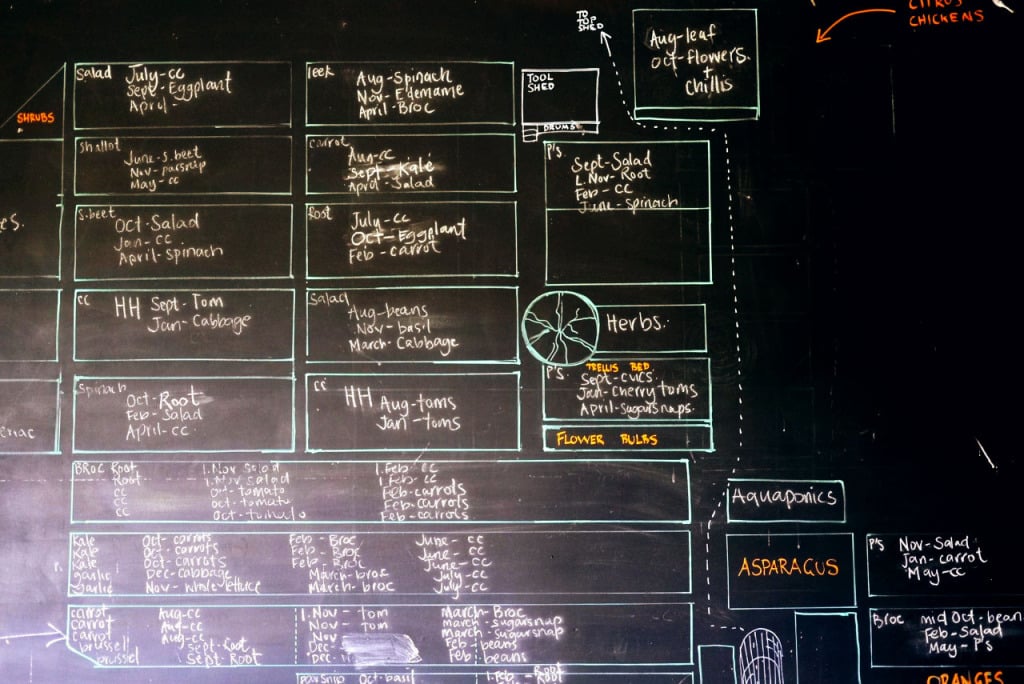 CITRUS
CHICKENS
TO
TOP
SHED
Aug-leaf
Oct-flowers
+
chillis
SHRUBS
Salad
July-cc
Sept-Eggplant
April-
leek
Aug-Spinach
Nov-Edemame
April-Broc
TOOL
SHED
DRUMS
Shallot
June-s.beet
Nov-parsnap
May-cc
carrot
Aug-cc
Sept-Kale
April-Salad
P's
Sept-Salad
L.Nov-Root
Feb-CC
June-spinach
S.beet
Oct-Salad
Jan-cc
April-spinach
Root
July-cc
Oct-Eggplant
Feb-carrot
cc
HH Sept-Tom
Jan-Cabbage
Salad
Aug-beans
Nov-basil
March-Cabbage
Herbs.
Spinach
Oct-Root
Feb-Salad
April-cc
cc
HH Aug-toms
Jan-toms
TRELLIS BED
P's
Sept-cucs
Jan-Cherry toms
April-sugarsnaps
FLOWER BULBS
Broc Root l.Nov salad l.Feb-cc
Root l.Nov salad l.Feb-cc
cc Oct-tomato Feb-carrots
cc Oct-tomato Feb-carrots
cc Oct- Feb-carrots
Aquaponics
Kale Oct-carrots Feb-Broc June-cc
Kale Oct-carrots Feb-Broc June-cc
Kale Oct-carrots Feb-Broc June-cc
garlic Dec-cabbage March-broc July-cc
garlic Nov-whole lettuce March-broc July-cc
ASPARAGUS
P's
Nov-Salad
Jan-carrot
May-cc
carrot Aug-cc l.Nov-tom March-Broc
carrot Aug-cc Nov-tom March-sugarsnap
carrot Aug-cc Nov March-sugarsnap
brussell Sept-Root Dec- Feb-beans
brussel Sept-Root Dec- Feb-beans
Broc mid Oct-bean
Feb-Salad
May-P's
ORANGES
parsnip Oct-basil l.Feb-Root